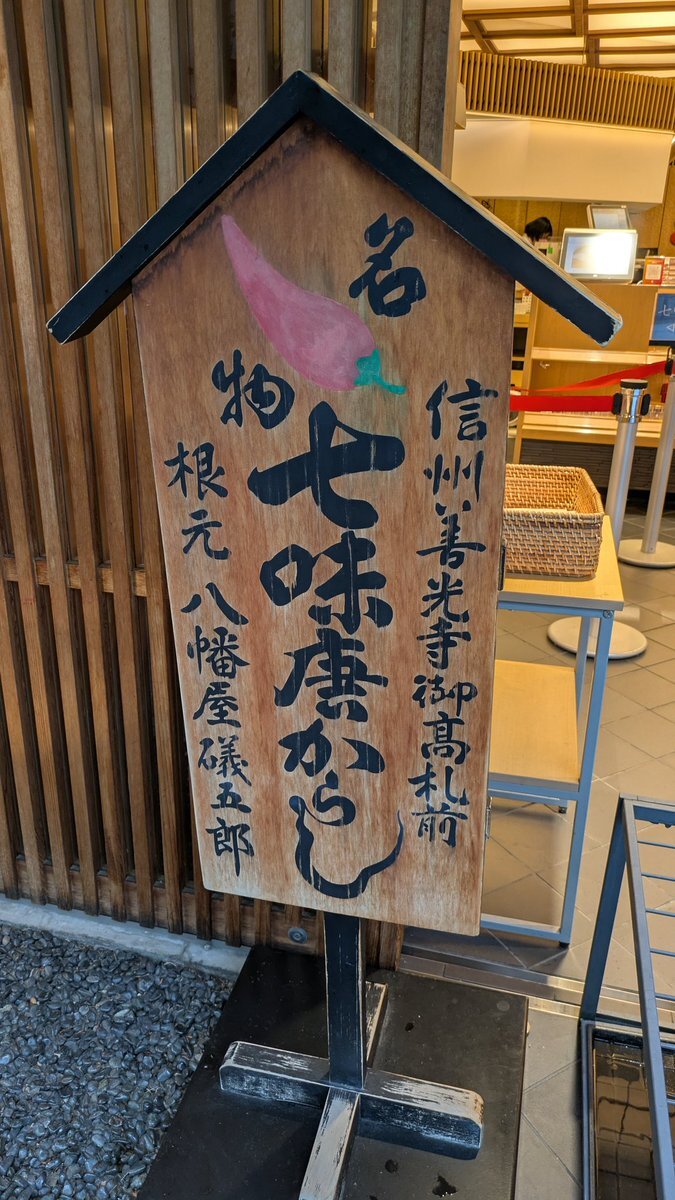 名物
信州善光寺御高札前
七味唐からし
根元 八幡屋礒五郎
七味